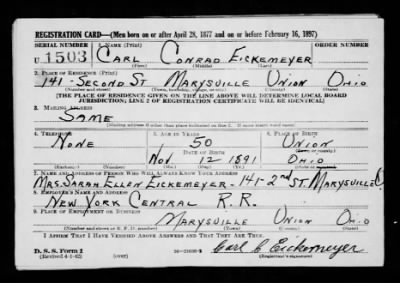 REGISTRATION CARD—(Men born on or after April 28, 1877 and on or before February 16, 1897)
SERIAL NUMBER 1. NAME (Print)
U 1503 CARL CONRAD EICKEMEYER
(First) (Middle) (Last)
2. PLACE OF RESIDENCE (Print)
141 - SECOND ST MARYSVILLE UNION OHIO
(Number and street) (Town, township, village, or city) (County) (State)
[THE PLACE OF RESIDENCE GIVEN ON THE LINE ABOVE WILL DETERMINE LOCAL BOARD
JURISDICTION; LINE 2 OF REGISTRATION CERTIFICATE WILL BE IDENTICAL]
3. MAILING ADDRESS
SAME
[Mailing address if other than place indicated on line 2. If same insert word same]
4. TELEPHONE 5. AGE IN YEARS 6. PLACE OF BIRTH
NONE 50 UNION
DATE OF BIRTH (Town or county)
NOV. 12 1891 OHIO
(Exchange) (Number) (Mo.) (Day) (Yr.) (State or country)
7. NAME AND ADDRESS OF PERSON WHO WILL ALWAYS KNOW YOUR ADDRESS
MRS. SARAH ELLEN EICKEMEYER - 141 - 2nd ST. MARYSVILLE O.
8. EMPLOYER'S NAME AND ADDRESS
NEW YORK CENTRAL R.R.
9. PLACE OF EMPLOYMENT OR BUSINESS
MARYSVILLE UNION OHIO
(Number and street or R. F. D. number) (Town) (County) (State)
I AFFIRM THAT I HAVE VERIFIED ABOVE ANSWERS AND THAT THEY ARE TRUE.
D. S. S. Form 1 Carl C Eickemeyer
(Revised 4-1-42) (over) (Registrant's signature)